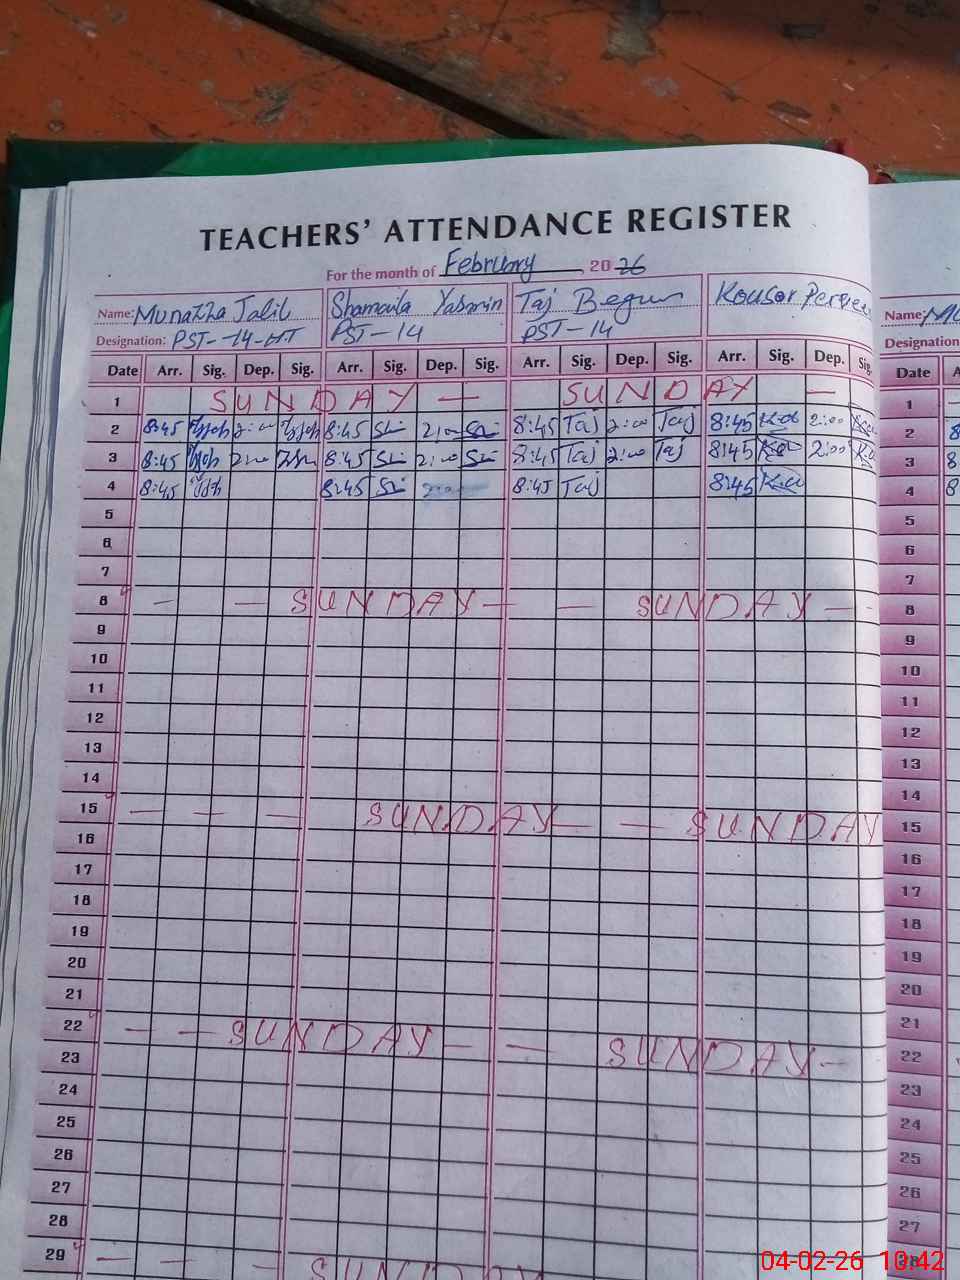 TEACHERS' ATTENDANCE REGISTER
For the month of February 2026
Name: Munazha Jalil Shamaila Yasmin Taj Begum Kousar Perveen Name:
Designation: PST-14-HT PST-14 PST-14 Designation
Date Arr. Sig. Dep. Sig. Arr. Sig. Dep. Sig. Arr. Sig. Dep. Sig. Arr. Sig. Dep. Sig. Date A
1 SUNDAY — SUNDAY — 1
2 8:45 2:00 8:45 2:00 8:45 Taj 2:00 Taj 8:45 2:00 2 8
3 8:45 2:00 8:45 2:00 8:45 Taj 2:00 Taj 8:45 2:00 3 8
4 8:45 8:45 8:45 Taj 8:45 4 8
5 5
6 6
7 7
8 — — SUNDAY — — SUNDAY — - 8
9 9
10 10
11 11
12 12
13 13
14 14
15 — — — SUNDAY — — SUNDAY 15
16 16
17 17
18 18
19 19
20 20
21 21
22 — — SUNDAY — — SUNDAY — 22
23 23
24 24
25 25
26 26
27 27
28
29 — — — SUNDAY
04-02-26 10:42